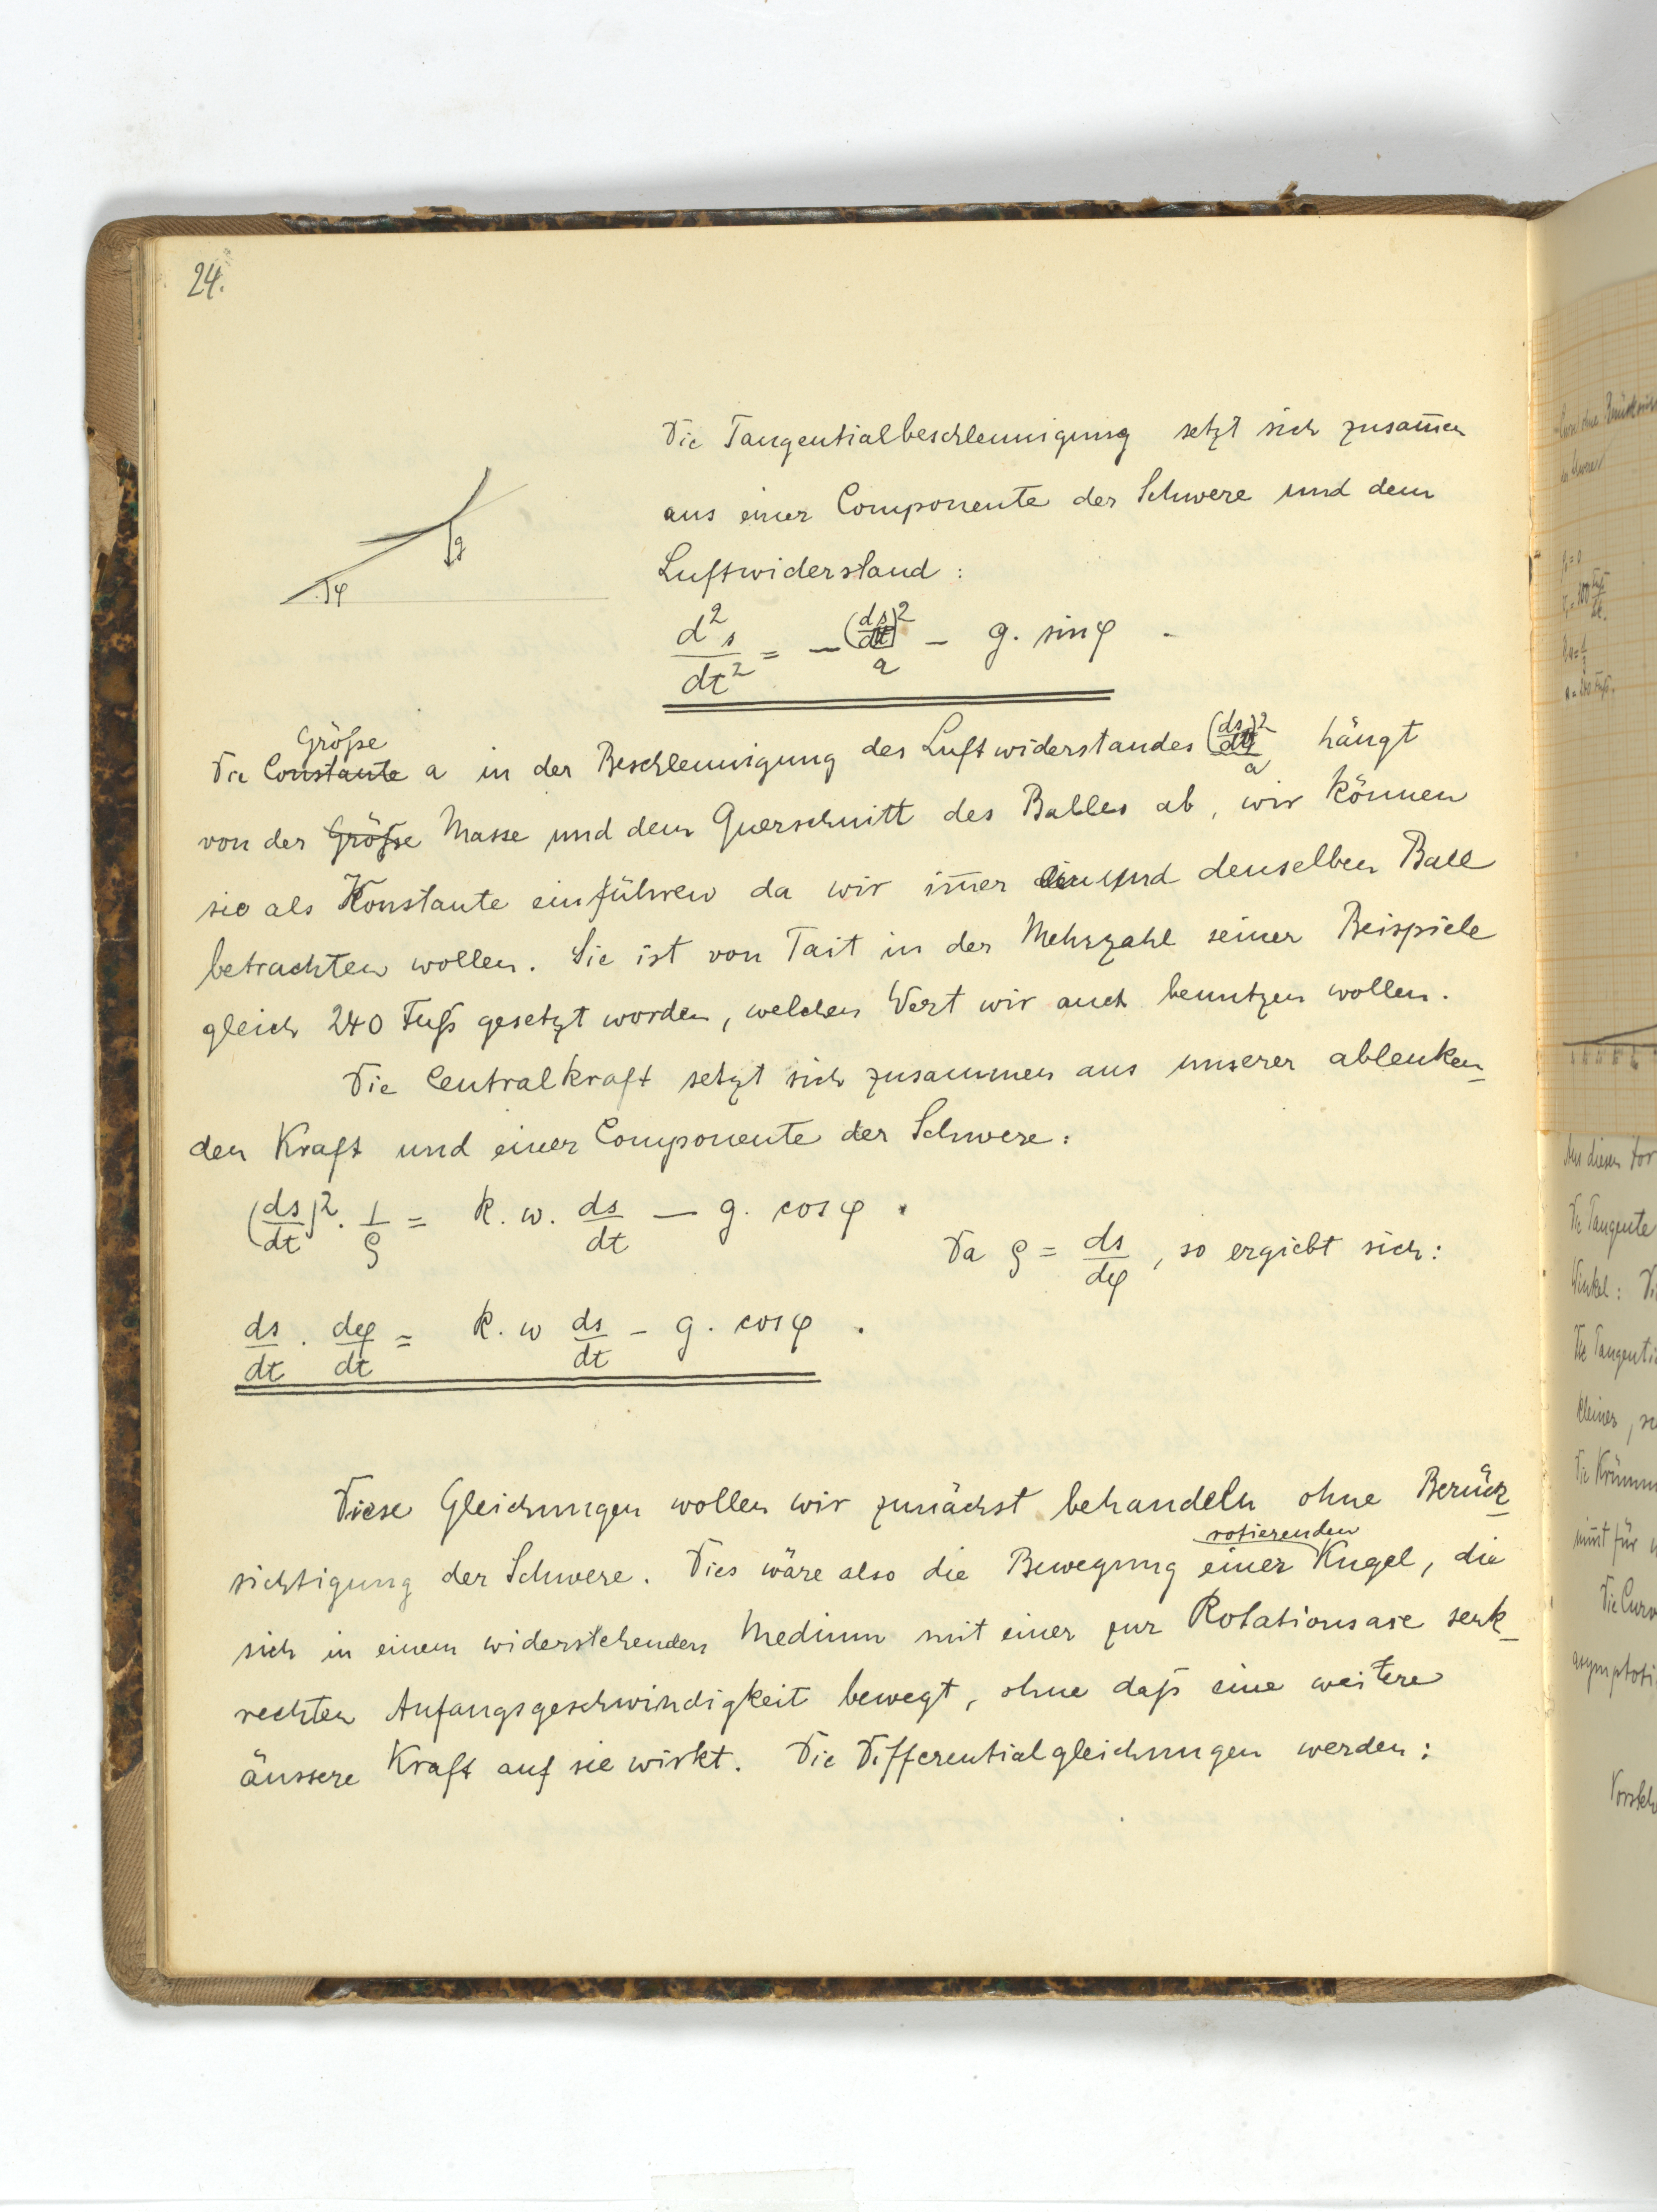 24.
Die Tangentialbeschleunigung setzt sich zusam̅en
aus einer Componente der Schwere und dem
Luftwiderstand:
g
φ
d²s/dt² = − (ds/dt)²/a − g. sin φ .
Größe
Die Constante a in der Beschleunigung des Luftwiderstandes (ds/dt)²/a hängt
von der Größe Masse und dem Querschnitt des Balles ab, wir können
sie als Konstante einführen da wir im̅er ein und denselben Ball
betrachten wollen. Sie ist von Tait in der Mehrzahl seiner Beispiele
gleich 240 Fuß gesetzt worden, welchen Wert wir auch benutzen wollen.
Die Centralkraft setzt sich zusammen aus unserer ablenken-
den Kraft und einer Componente der Schwere:
(ds/dt)² . 1/ρ = k. w. ds/dt − g. cos φ .
Da ρ = ds/dφ, so ergiebt sich:
ds/dt . dφ/dt = k. w ds/dt − g. cos φ .
Diese Gleichungen wollen wir zunächst behandeln ohne Berück-
rotierenden
sichtigung der Schwere. Dies wäre also die Bewegung einer Kugel, die
sich in einem widerstehenden Medium mit einer zur Rotationsaxe senk-
rechten Anfangsgeschwindigkeit bewegt, ohne daß eine weitere
äussere Kraft auf sie wirkt. Die Differentialgleichungen werden:
Aus diesen
Die Tangente
Winkel:
Die Tangenti
kleiner,
Die Krümm
für
Die Curv
asymptoti